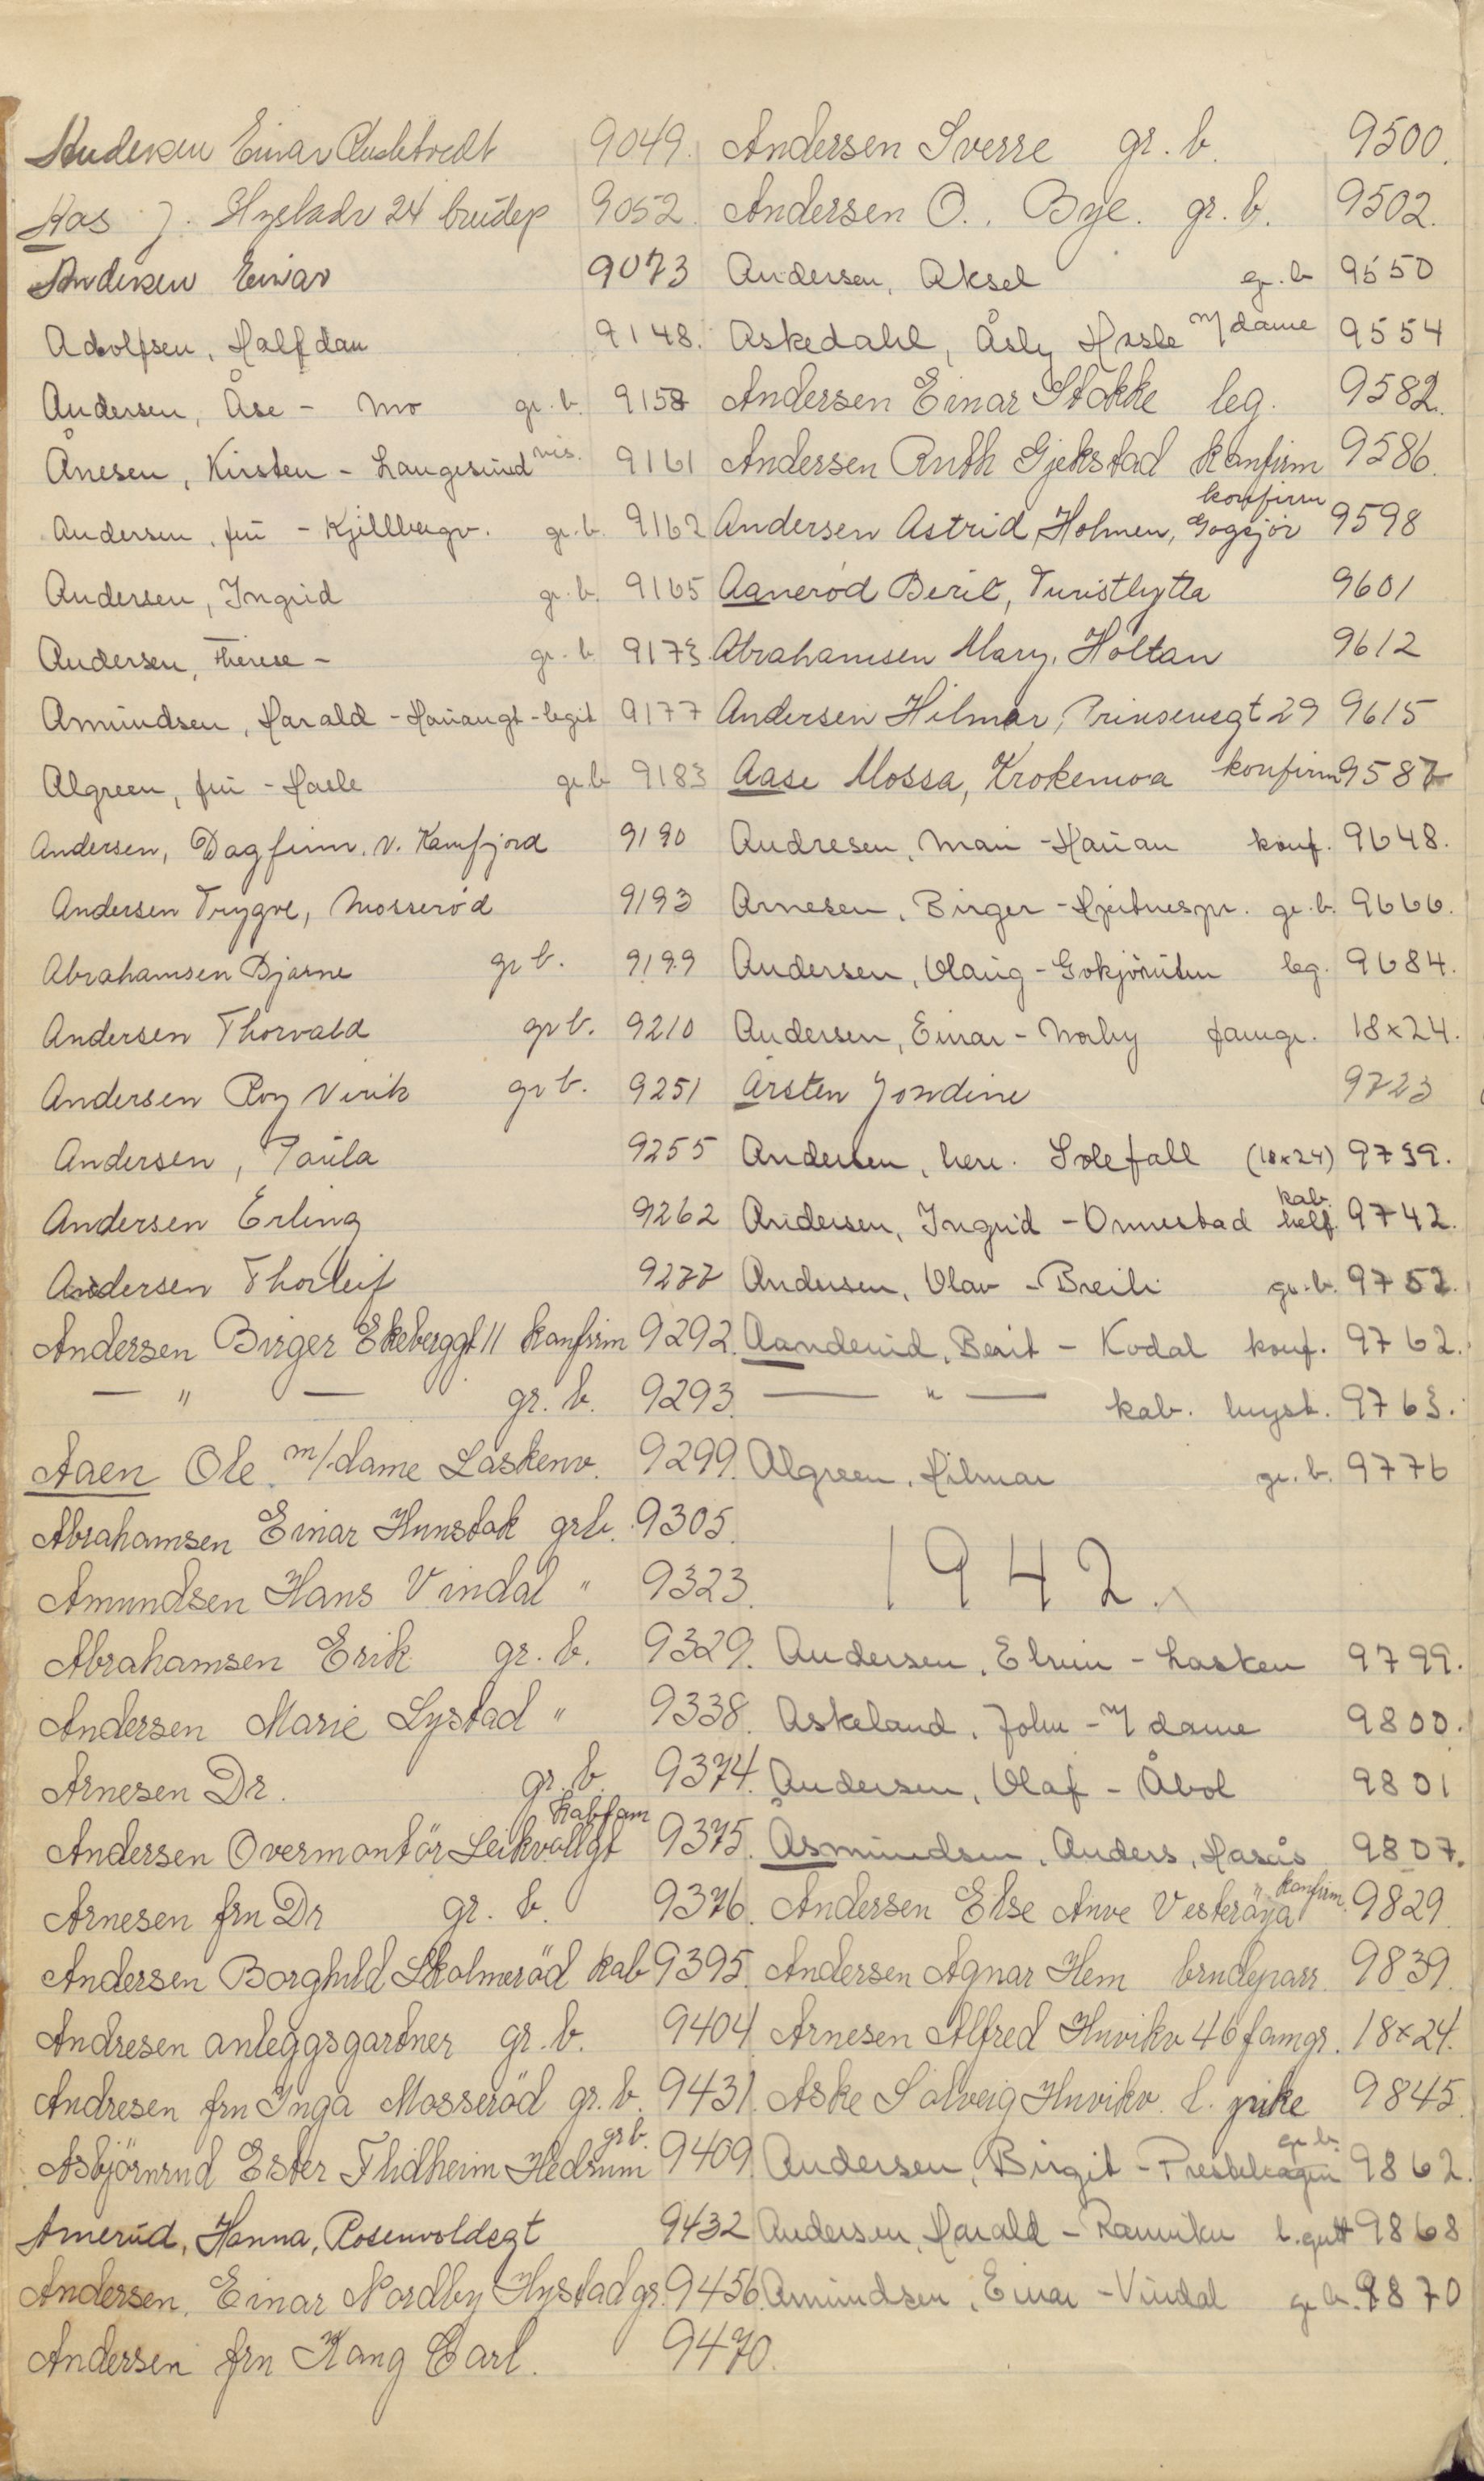 Andersen Einar 9049.
Aas J. Hystadv 24 brudep 9052.
Andersen Einar 9073
Adolfsen, Halfdan 9148.
Andersen, Åse - Mo gr. b. 9158
Ånesen, Kirsten - Langesund vis. 9161
Andersen, fru - Kjellbergv. gr. b. 9162
Andersen, Ingrid gr. b. 9165
Andersen, Therese - gr. b. 9173.
Amundsen, Harald - Hauangt - legit 9177
Algreen, fru - Hasle gr. b 9183
Andersen, Dagfinn. N. Kamfjord 9190
Andersen Trygve, Mosserød 9193
Abrahamsen Bjarne gr b. 9199
Andersen Thorvald gr b. 9210
Andersen Roy Virik gr b. 9251
Andersen, Paula 9255
Andersen Erling 9262
Andersen Thorleif 9277
Andersen Birger Ekeberggt 11 konfirm 9292.
— " — gr. b. 9293.
Aaen Ole m/dame Laskenv. 9299.
Abrahamsen Einar Hunstok gr b. 9305.
Amundsen Hans Vindal " 9323.
Abrahamsen Erik gr. b. 9329.
Andersen Marie Lystad " 9338.
Arnesen Dr. gr. b. 9374.
kab fam
Andersen Overmontör Leikvollgt 9375.
Arnesen fru Dr gr. b. 9376.
Andersen Borghild Skolmeröd kab 9395.
Andresen anleggsgartner gr. b. 9404
Andresen fru Inga Mosseröd gr. b. 9431.
gr b.
Asbjörnrud Ester Flidheim Hedrum 9409
Amerud, Hanna, Rosenvoldsgt 9432
Andersen, Einar Nordby Hystad gr. 9456
Andersen fru Kang Carl. 9470.
Andersen Sverre gr. b. 9500.
Andersen O. Bye. gr. b. 9502.
Andersen, Aksel gr. b 9550
Askedahl, Åsly Hasle m/dame 9554
Andersen Einar Stokke leg. 9582.
Andersen Ruth Gjekstad konfirm 9586.
konfirm
Andersen Astrid, Holmen, Gogsjør 9598
Aanerød Berit, Turisthytta 9601
Abrahamsen Mary, Holtan 9612
Andersen Hilmar, Prinsensgt 29 9615
Aase Mossa, Krokemoa konfirm 9587
Andresen, Mari - Hauan konf. 9648.
Arnesen, Birger - Hjertnespr. gr. b. 9666.
Andersen, Olaug - Gokjøruten leg. 9684.
Andersen, Einar - Norby famgr. 18x24.
Arsten Jondine 9723
Andersen, herr. Solefall (18x24) 9739.
kab.
Andersen, Ingrid - Ormestad helf. 9742.
Andersen, Olav - Breili gr. b. 9752.
Aanderud, Berit - Kodal konf. 9762.
— " — kab. bryst. 9763.
Algreen, Hilmar gr. b. 9776
1942.
Andersen, Elvin - Lasken 9799.
Askeland, John - m/dame 9800.
Andersen, Olaf - Åbol 9801
Asmundsen, Anders, Hasås 9807.
konfirm.
Andersen Else Anve Vesteröya 9829
Andersen Agnar Hem brudeparr. 9839.
Arnesen Alfred Huvikv 46 famgr. 18x24.
Aske Solveig Huvikv. l. pike 9845.
gr. b.
Andersen, Birgit - Prestehagen 9862.
Andersen, Harald - Ranvikv l. gutt 9868
Amundsen, Einar - Vindal gr. b. 9870